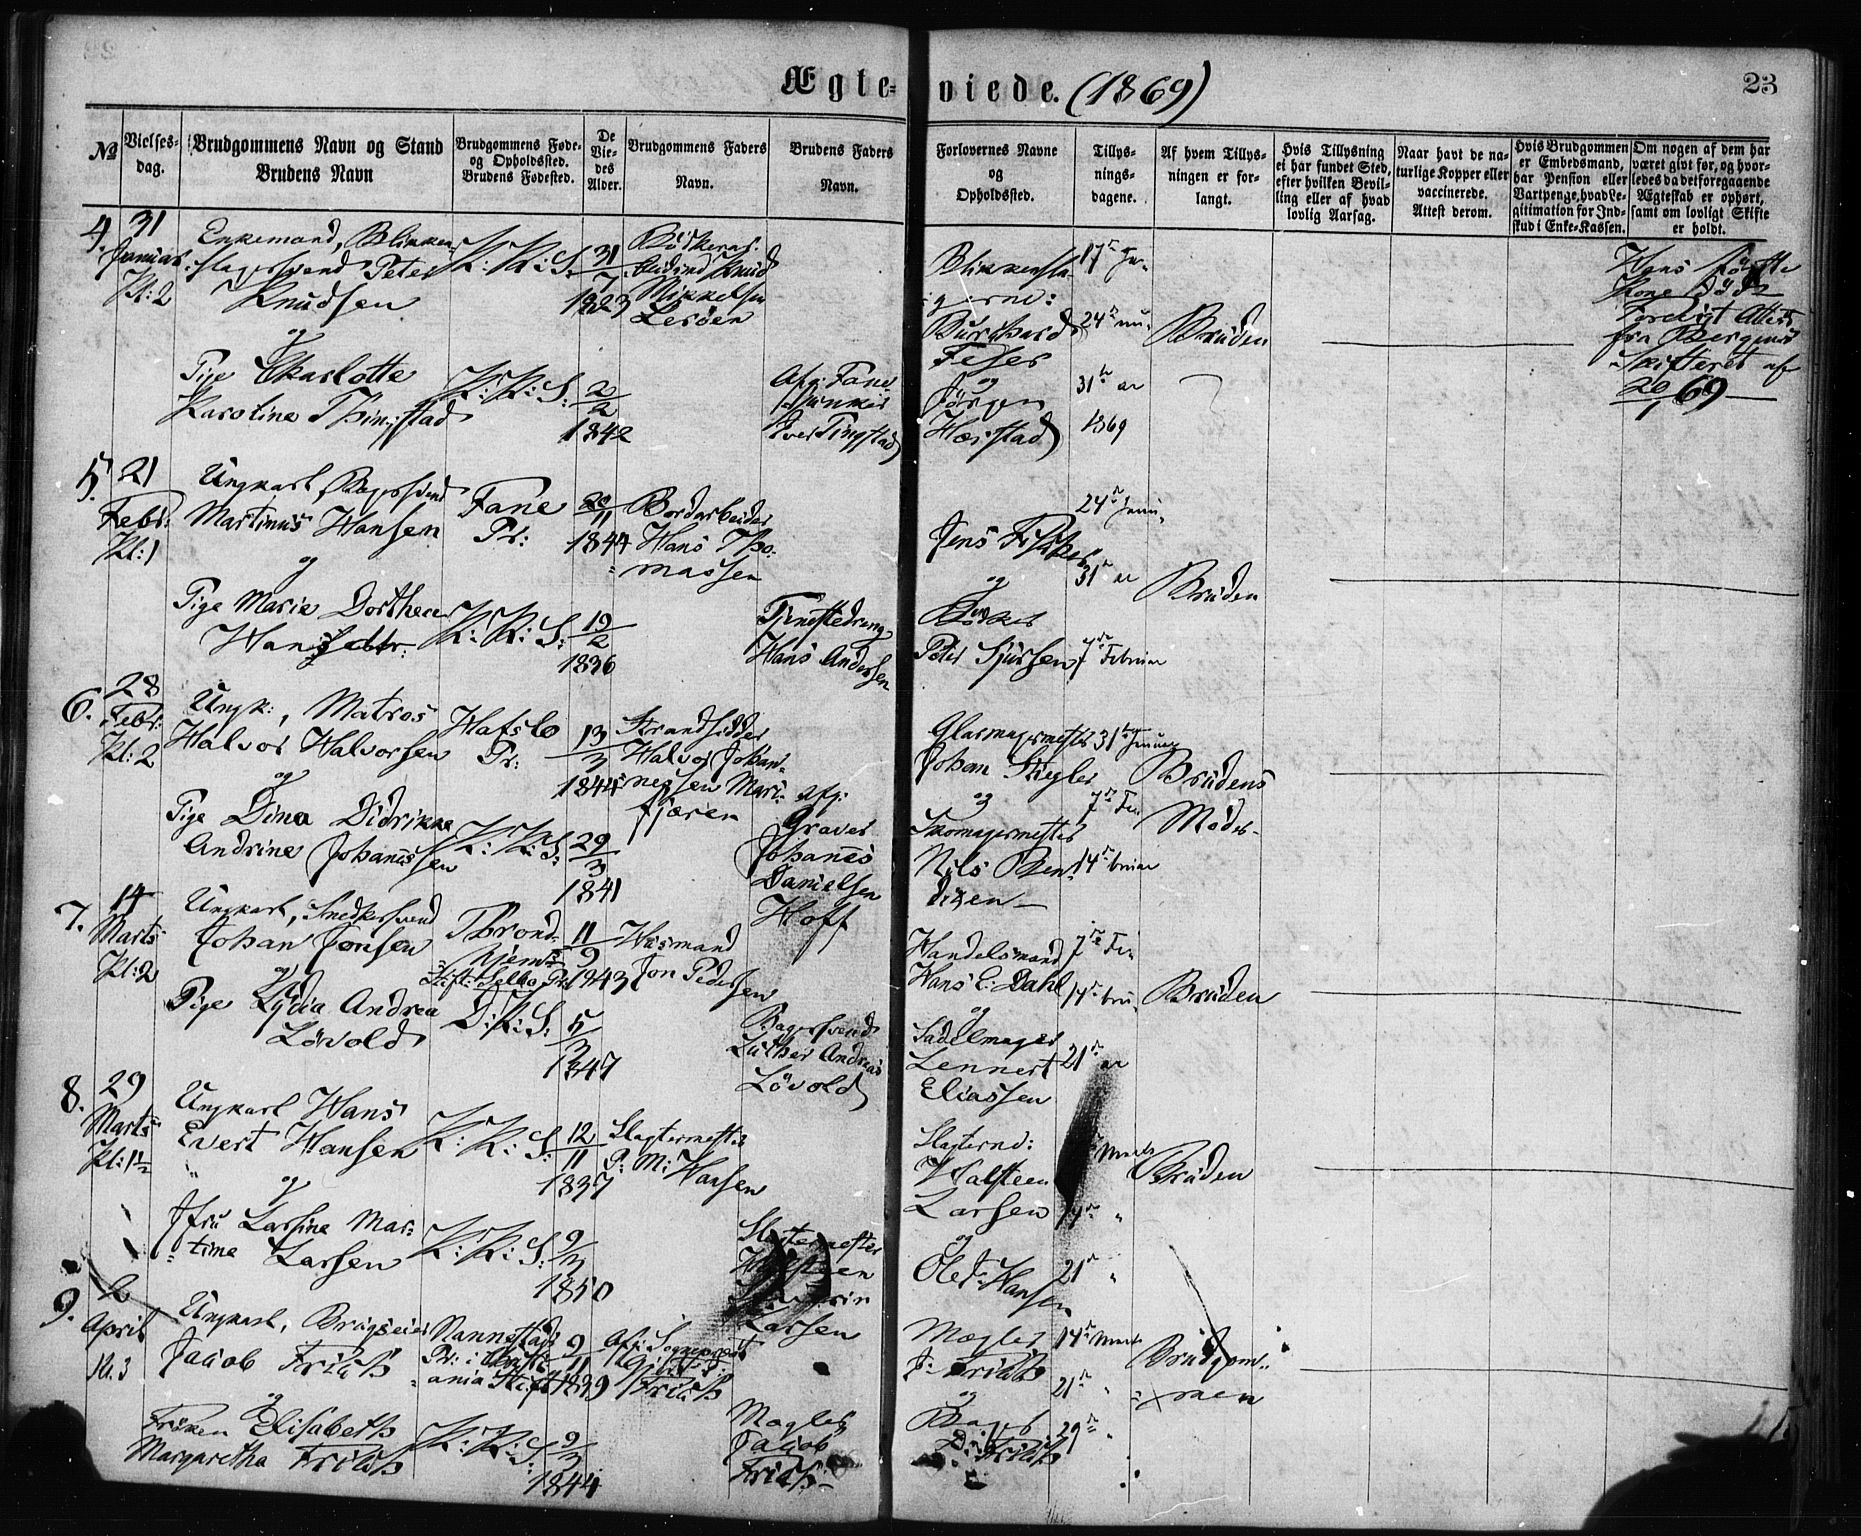 Ægte-viede. (1869)
23
No
Vielses-
dag.
Brudgommens Navn og Stand
Brudens Navn
Brudgommens Føde-
og Opholdssted.
Brudens Fødested.
De
Vie-
des
Alder.
Brudgommens Faders
Navn.
Brudens Faders
Navn.
Forlovernes Navne
og
Opholdssted.
Tillys-
nings-
dagene.
Af hvem Tillys-
ningen er for-
langt.
Hvis Tillysning
ei har fundet Sted,
efter hvilken Bevil-
ling eller af hvad
lovlig Aarsag.
Naar havt de na-
turlige Kopper eller
vaccinerede.
Attest derom.
Hvis Brudgommen
er Embedsmand,
har Pension eller
Vartpenge, hvad Le-
gitimation for Ind-
skud i Enke-Kassen.
Om nogen af dem har
været givt før, og hvor-
ledes da det foregaaende
Ægteskab er ophørt,
samt om lovligt Skifte
er holdt.
4.
31
Januar.
Kl: 2
Enkemand, Blikken-
slagersvend Peter
Knudsen
og
Pige Charlotte
Karoline Thingstad
K: K: S.
K: K: S:
31
7
1823
2
2
1842
Knud
Mikkelsen
Lerøen
Afg: Fane-
junker
Iver Tingstad
Blikkensla-
gerne:
Burchard
Feser
og
Jørgen
Harstad
17de Ja-
24de nu-
31te ar
1869
Bruden
Hans første
Kone død
Forevist Attest
fra Bergens
Skifteret af
20/1 69
5.
21
Febr:
Kl: 1
Ungkarl, Bagersvend
Martinus Hansen
og
Pige Marie Dorthea
Hansdtr:
Fane
Pr:
K: K: S:
20
11
1844
19
2
1836
Bordarbeider
Hans Tho-
massen
Tjenestedreng
Hans Andersen
Jens Fisker
og
Peter Sjursen
24de Janu-
31te ar
7de Februar
Bruden
6.
28
Febr:
Kl: 2
Ungk:, Matros
Halvor Halvorsen
og
Pige Dina Didrikke
Andrine Johanessen
Hafslo
Pr:
K: K: S:
13
3
1844
29
3
1841
Strandsidder
Halvor Johan-
nessen Mari-
fjæren
Afg:
Graver
Johanes
Danielsen
Hoff
Glarmagermester
Johan Stiegler
og
Skomagermester
Nils Ben-
dixen
31te Januar
7de Fe-
14de bruar
Brudens
Moder
7.
14
Marts
Kl: 2
Ungkarl, Snedkersvend
Johan Jonsen
og
Pige Lydia Andrea
Løvold
Thrond-
hjems
Stift: Selbo Pr:
D: K: S:
11
9
1843
5
2
1847
Husmand
Jon Pedersen
Bagersvend
Luther Andreas
Løvold
Handelsmand
Hans E: Dahl
og
Sadelmager
Lennert
Eliassen
7de Fe-
14de bru-
21de ar
Bruden
8.
29
Marts
Kl: 1 1/2
Ungkarl Hans
Evert Hansen
og
Jfru Larsine Mar-
tine Larsen
K: K: S:
K: K: S:
12
11
1837
9
3
1850
Slagtermester
P: M: Hansen
Slagtermester
Larsen
Slagterne:
Halsteen
Larsen
og
Ole d: Hansen
Marts
14de "
21de "
Bruden
9.
2
April
Kl. 3
Ungkarl, Brugseier
Jacob Friis
og
Frøken Elisabeth
Margaretha Friis
Nannestad
Pr: i Christi-
ania Stift
K: K: S:
9
11
1839
9
3
1844
Afg: Sogneprest
Mægler
Jacob
Mægler
J:
og
14de Marts
21de "
29de "
Brudgom-
men